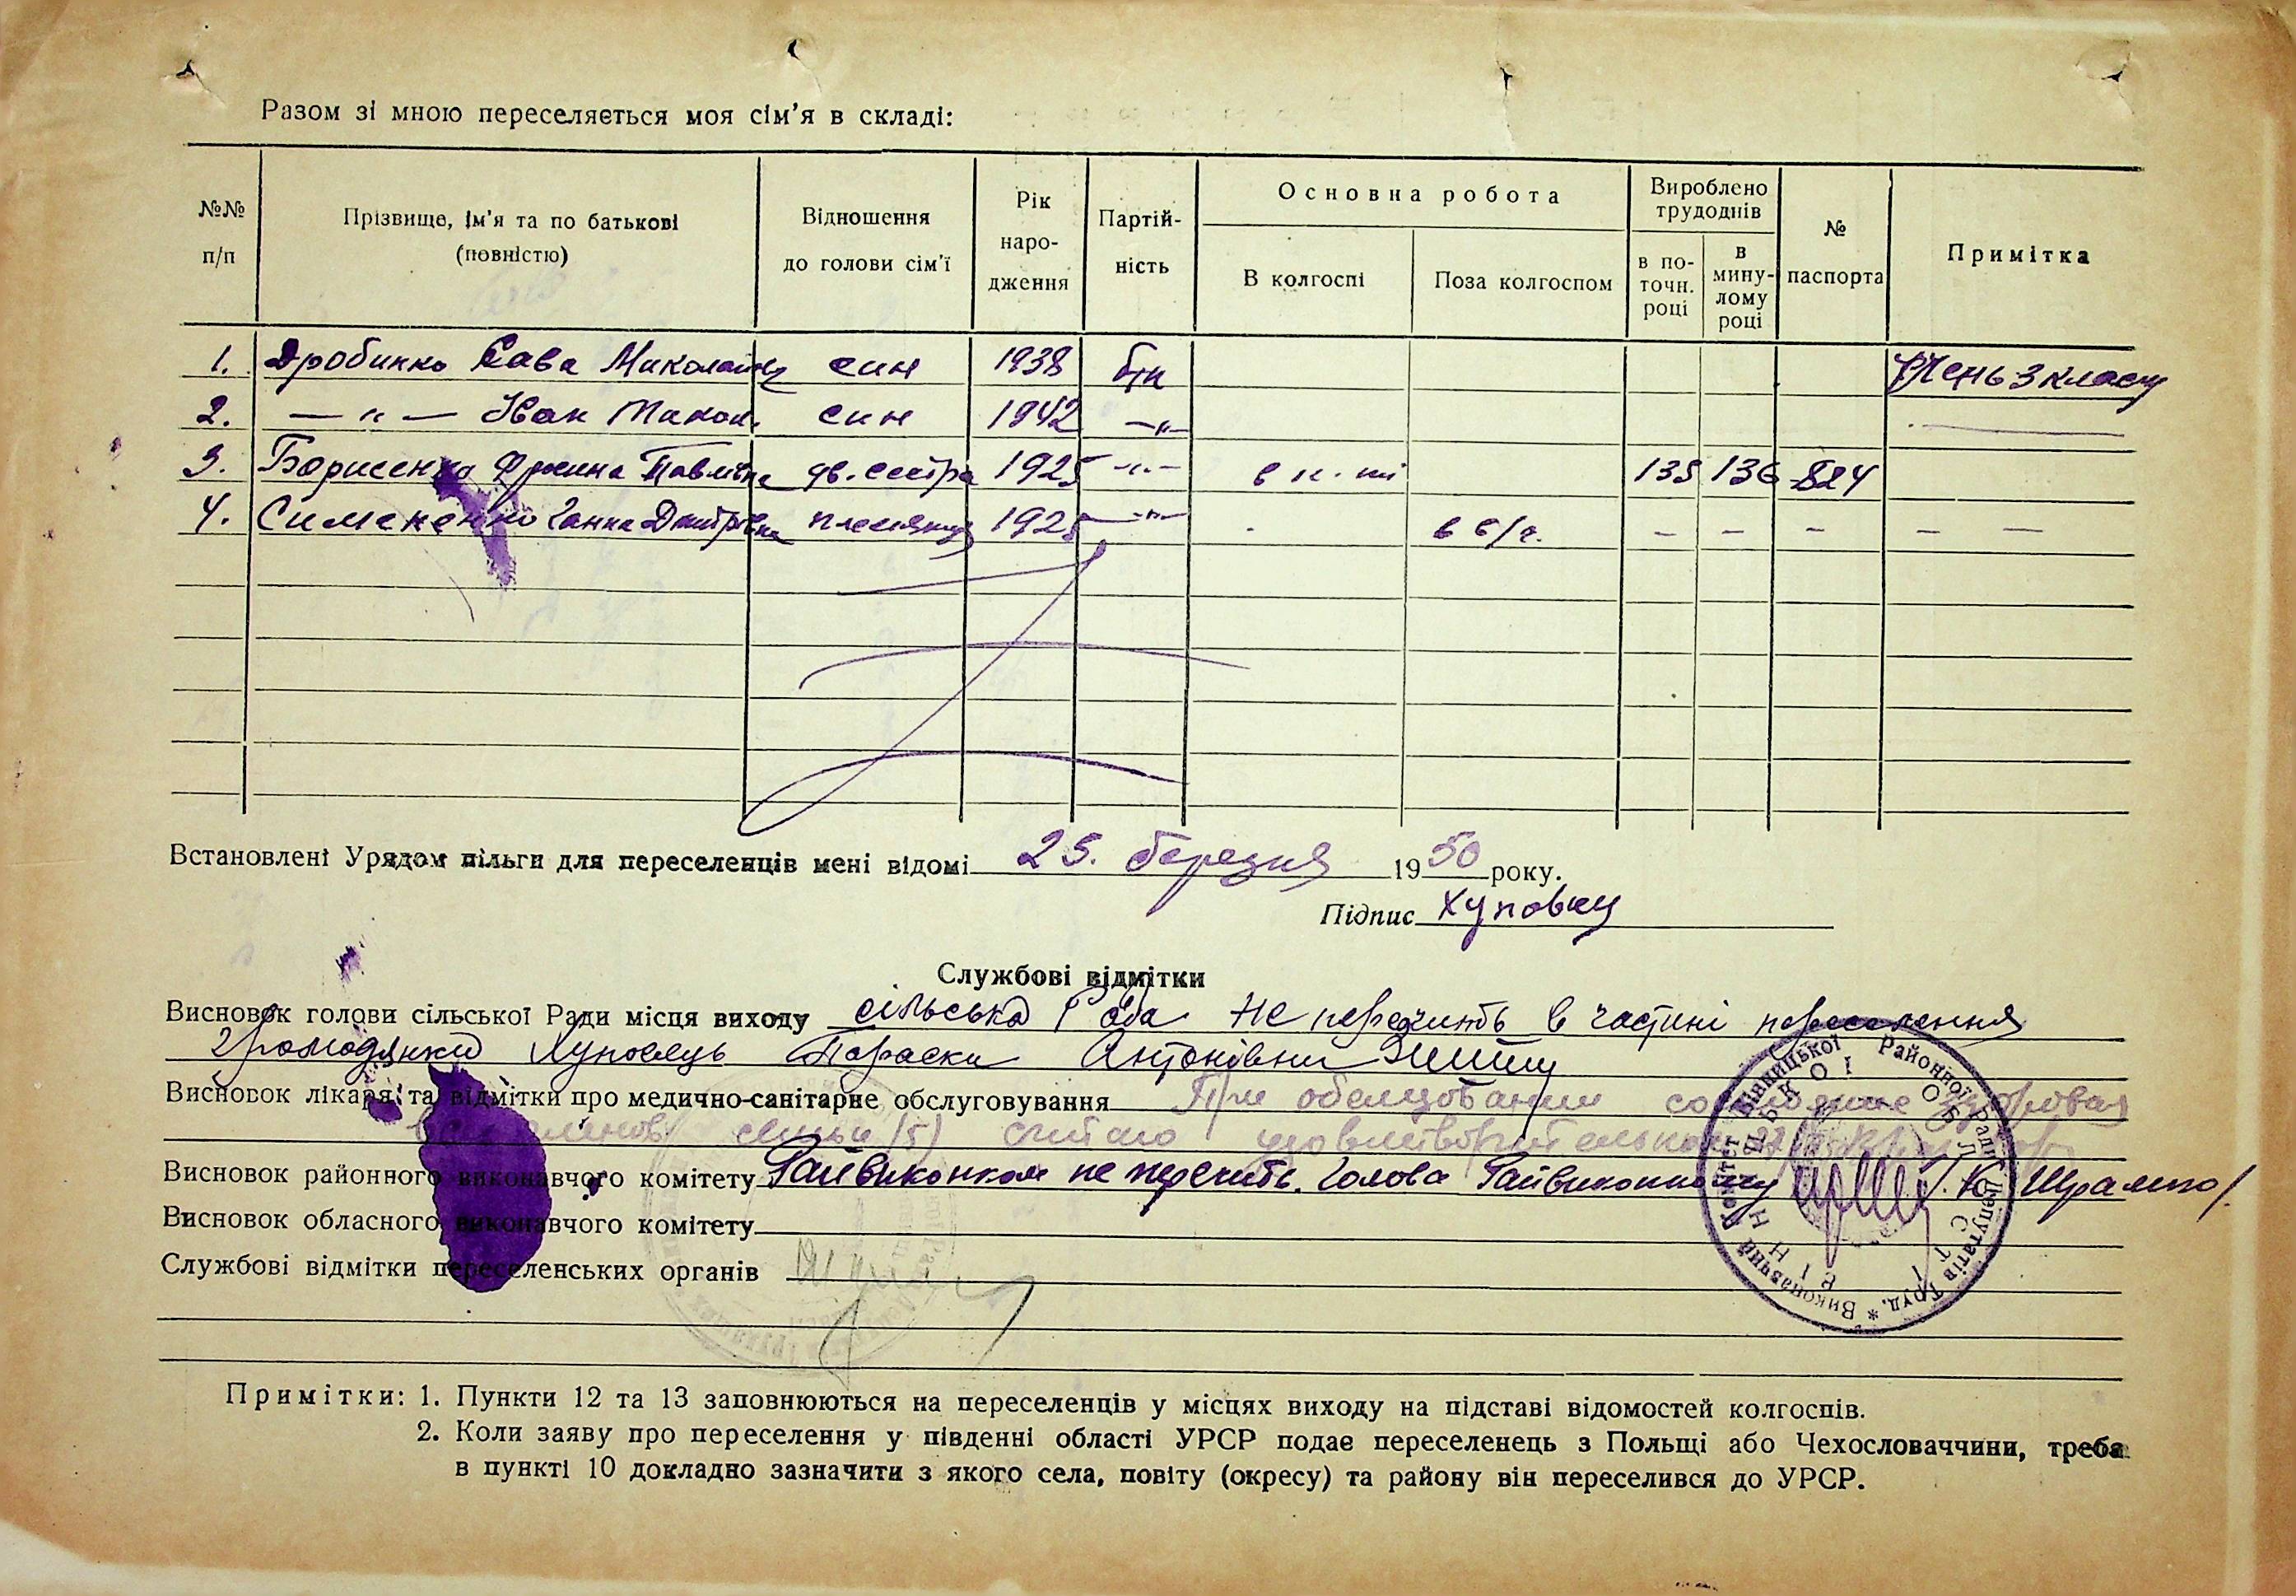 Разом зі мною переселяється моя сім'я в складі:
№№ п/п
Прізвище, ім'я та по батькові (повністю)
Відношення до голови сім'ї
Рік наро-дження
Партій-ність
Основна робота
В колгоспі
Поза колгоспом
Вироблено трудоднів
в по-точн. році
в мину-лому році
№ паспорта
Примітка
1. Дробинко Сава син 1938 б/п Учень 3 класу
2. — „ — Іван Микол. син 1942 —„—
3. Борисенко Павлівна дв. сестра 1925 —„— 135 136 824
4. Ганна Дмитрівна 1925 —„— - - - - - -
Встановлені Урядом пільги для переселенців мені відомі 25. березня 1950 року.
Підпис Хуповец
Службові відмітки
Висновок голови сільської Ради місця виходу сільська Рада не перечить в частині переселення
громодянки Хуповець Параски Антонівни
Висновок лікаря та відмітки про медично-санітарне обслуговування При
семьи (5) считаю удовлетворительным
Висновок районного виконавчого комітету Райвиконком не перечить. Голова Райвиконкому /. К. Шрамко/.
Висновок обласного виконавчого комітету
Службові відмітки переселенських органів
Виконавчий Комітет Вінницької Районної Ради Депутатів Труд. *
Примітки: 1. Пункти 12 та 13 заповнюються на переселенців у місцях виходу на підставі відомостей колгоспів.
2. Коли заяву про переселення у південні області УРСР подає переселенець з Польщі або Чехословаччини, треба
в пункті 10 докладно зазначити з якого села, повіту (окресу) та району він переселився до УРСР.